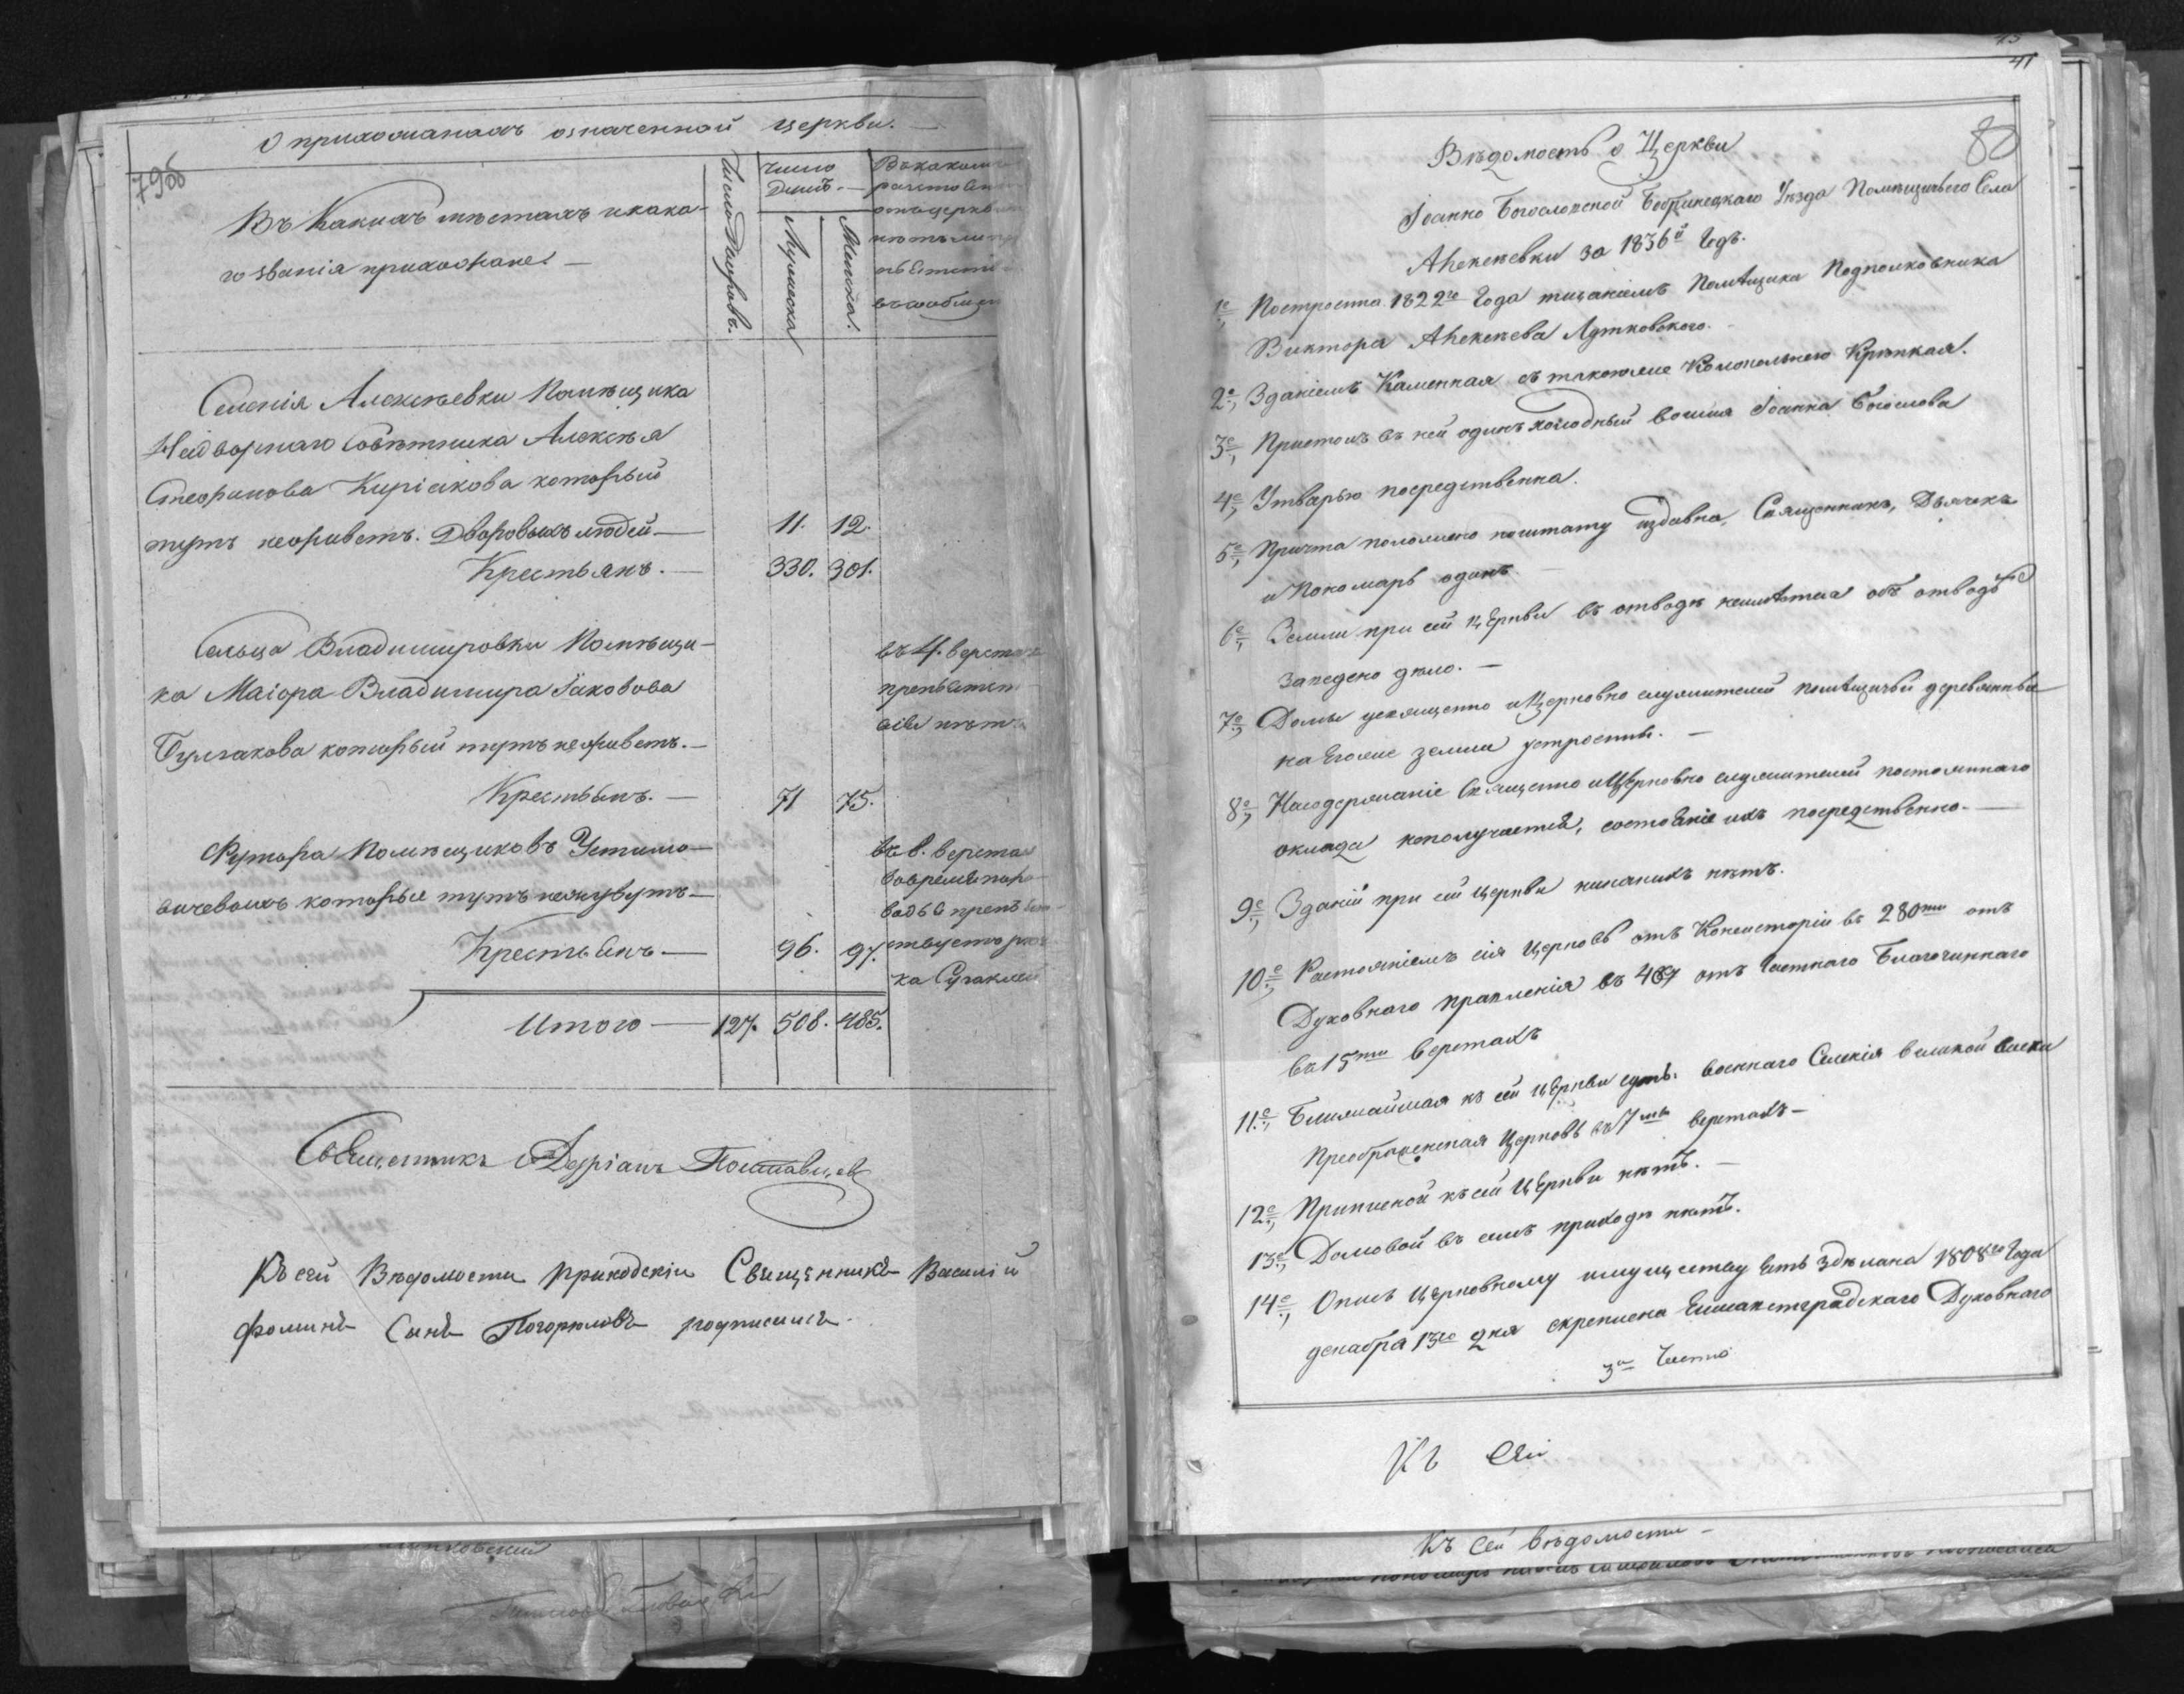 О прихожанахъ означенной церкви.
79об
Въ Какихъ мѣстахъ и кака-
го званія прихожане.
Число Дворовъ.
Число
Душъ.
Мужеска
Женска.
Въ какомъ
разстоян
отъ церкв
нѣтъ ли пр
въ сообщен
Селенія Алексѣевки Помѣщика
Надворнаго Совѣтника Алексѣя
Стефанова Киріякова который
тутъ неживетъ. Дворовыхъ людей — 11. 12.
Крестьянъ. — 330. 301.
Сельца Владимировки Помѣщи-
ка Маіора Владимира Іаковова
Булгакова который тутъ неживетъ. —
въ 4. верста
препятст
вія нѣтъ
Крестьянъ. — 71 75.
Футора Помѣщиковъ Устимо-
вичевыхъ которые тутъ неживутъ —
въ 8. верстах
вовремя поло-
водья препят
ствуетъ рѣч
ка Сугаклея
Крестьянъ — 96. 97.
Итого — 127. 508. 485.
Священникъ Адріанъ
Къ сей Вѣдомости приходскіи Священникъ Василій
Фоминъ Сынъ Погорѣловъ подписался.
41
80
Вѣдомость о Церкви
Іоанно Богословской Бобринецкаго Уѣзда Помѣщичьего Села
Алексѣевки за 1836й Годъ.
1е Построена 1822го Года тщаніемъ Помѣщика Подполковника
Виктора Алексѣева Лутковского.
2е Зданіемъ Каменная съ таковоюже Колокольнею Крѣпкая.
3е Престолъ въ ней одинъ холодный во имя Іоанна Богослова
4е Утварью посредственна.
5е Причта положено поштату издавна, Священникъ, Дьячекъ
и Пономарь одинъ.
6е Земли при сей церкви въ отводѣ неимѣется объ отводѣ
заведено дѣло. —
7е Домы у священно и Церковно служителей помѣщичьи деревянные
на Егоже земли устроенны. —
8е На содержаніе Священно и Церковно служителей постояннаго
оклада неполучается, состояніе ихъ посредственно. —
9е Зданій при сей церкви никакихъ нѣтъ.
10е Растояніемъ сія Церковь отъ Консисторіи въ 280ти отъ
Духовнаго правленія въ 467 отъ Частнаго Благочиннаго
въ 15ти верстахъ
11е Ближайшая къ сей церкви суть. военнаго Селенія великой виски
Преображенская Церковь въ 7ми верстахъ —
12е Приписной къ сей Церкви нѣтъ. —
13е Домовой въ семъ приходѣ нѣтъ.
14е Опись церковному имуществу Есть здѣлана 1808го Года
декабря 13го дня скреплена Елисаветградскаго Духовнаго
Къ Сей
Къ Сей вѣдомости —